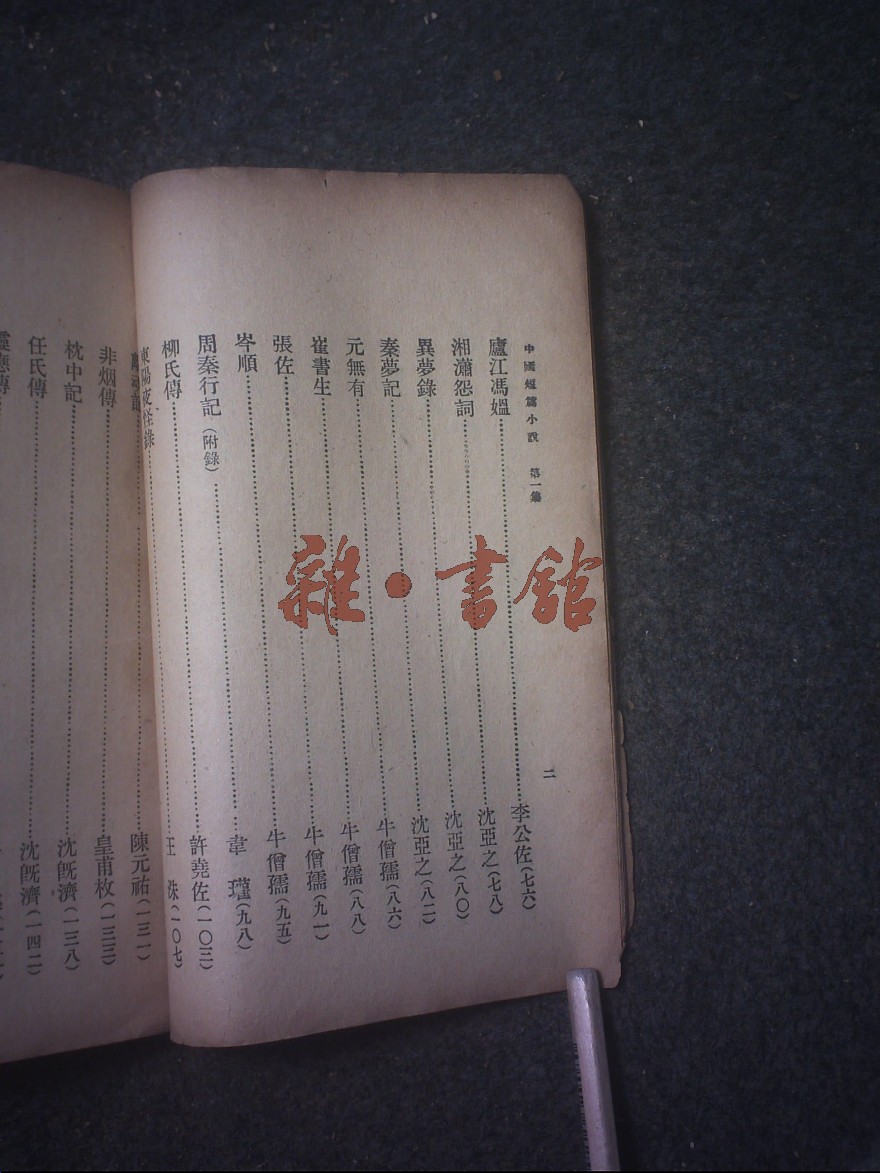 中國短篇小說 第一集 二
廬江馮媼 李公佐(七六)
湘瀟怨詞 沈亞之(七八)
異夢錄 沈亞之(八〇)
秦夢記 沈亞之(八二)
元無有 牛僧孺(八六)
崔書生 牛僧孺(八八)
張佐 牛僧孺(九一)
岑順 牛僧孺(九五)
周秦行記(附錄) 韋瓘(九八)
柳氏傳 許堯佐(一〇三)
東陽夜怪錄 王洙(一〇七)
陳元祐(一三一)
非烟傳 皇甫枚(一三三)
枕中記 沈旣濟(一三八)
任氏傳 沈旣濟(一四二)
雜·書館